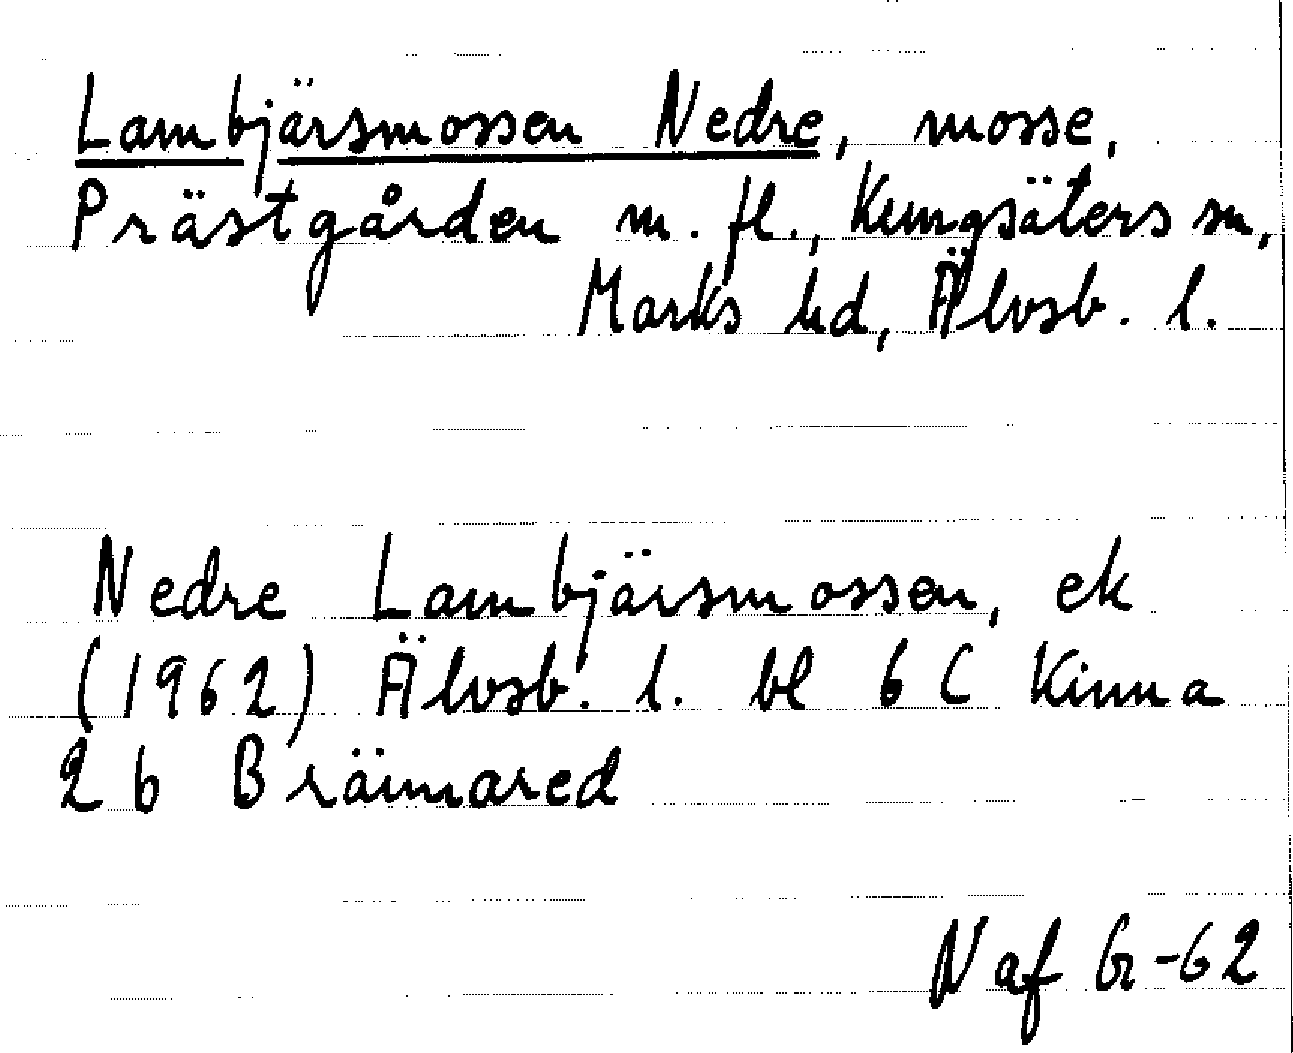 Lambjärsmossen Nedre, mosse,
Prästgården m. fl., Kungsäters sn,
Marks hd, Älvsb. l.
Nedre Lambjärsmossen, ek
(1962) Älvsb. l. bl 6 C Kinna
2 b Brännared
Naf Gr-62